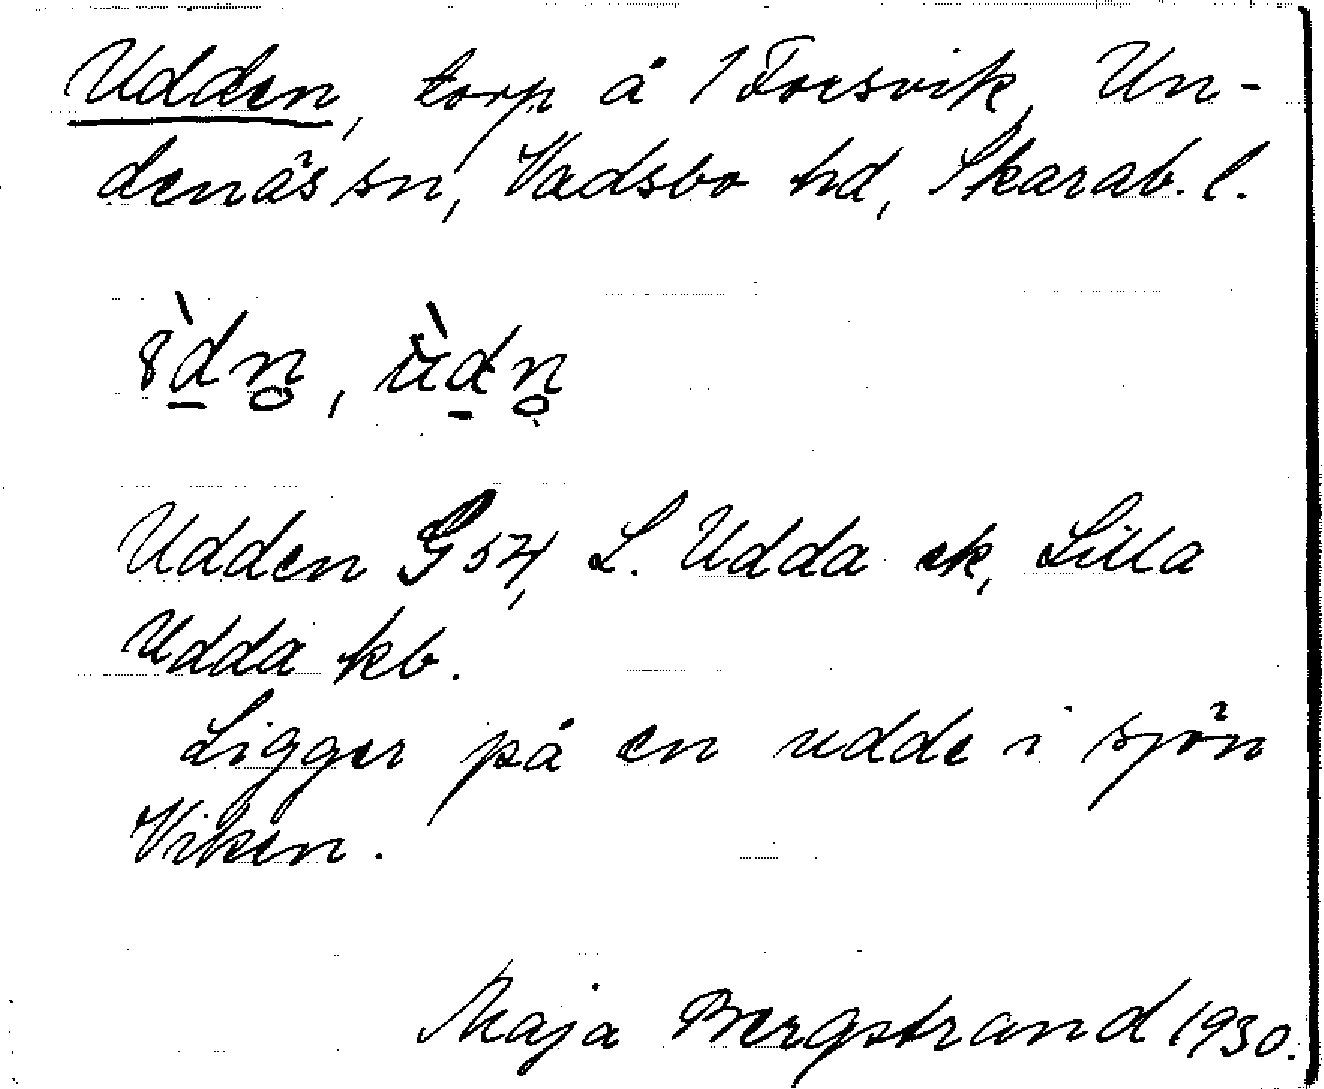 Udden, torp å 1 Forsvik, Un-
denäs sn, Vadsbo hd, Skarab. l.
Udden G 54, L. Udda ek, Lilla
Udda kb.
Ligger på en udde i sjön
Viken.
Maja Bergstrand 1930.